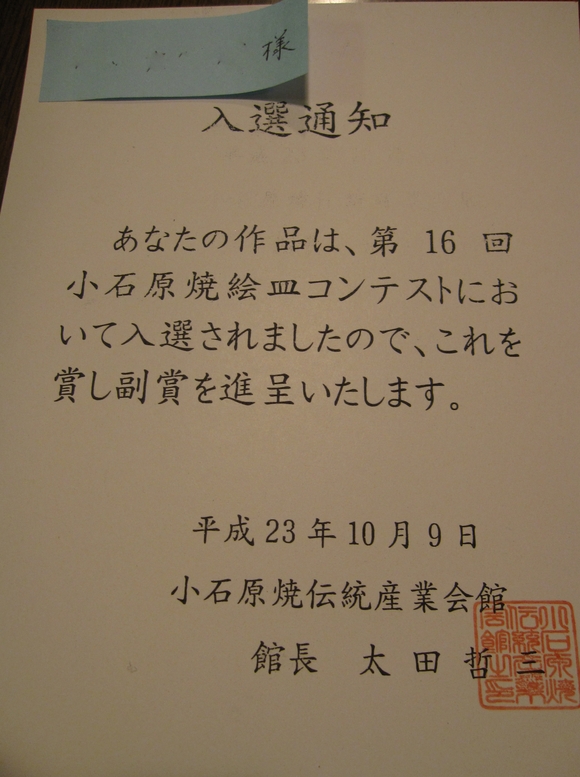 様
入選通知
あなたの作品は、第 16 回
小石原焼絵皿コンテストにお
いて入選されましたので、これを
賞し副賞を進呈いたします。
平成 23 年 10 月 9 日
小石原焼伝統産業会館
館長 太田哲三